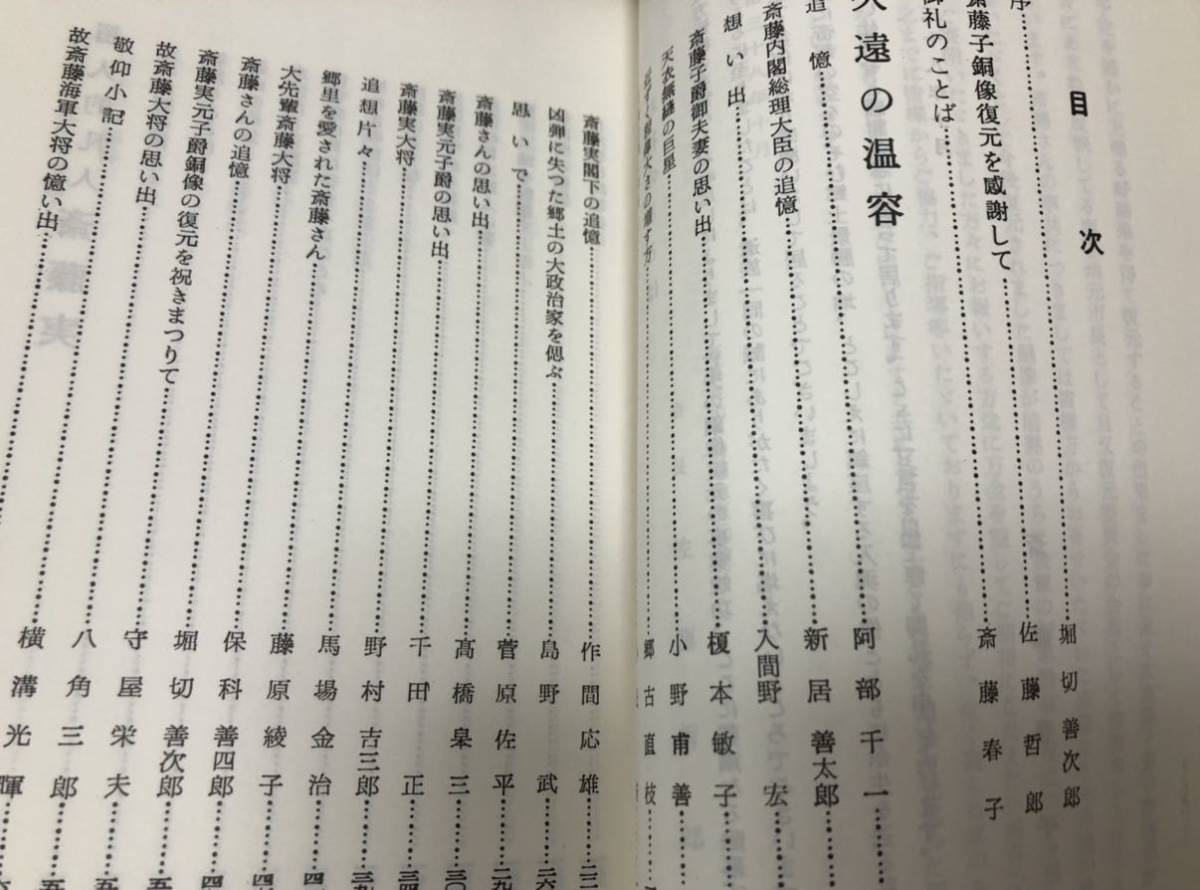 目次
序 堀切善次郎
斎藤子銅像復元を感謝して 佐藤哲郎
御礼のことば 斎藤春子
遠の温容 阿部千一
追憶 新居善太郎
斎藤内閣総理大臣の追憶 入間野宏
想い出 榎本敏子
斎藤子爵御夫妻の思い出 小野甫善
天衣無縫の巨星 郷古直枝
斎藤実閣下の追憶
凶弾に失つた郷土の大政治家を偲ぶ
思いで
斎藤さんの思い出
斎藤実元子爵の思い出
斎藤実大将
追想片々
郷里を愛された斎藤さん
大先輩斎藤大将
斎藤さんの追憶
斎藤実元子爵銅像の復元を祝きまつりて
故斎藤大将の思い出
敬仰小記
故斎藤海軍大将の憶い出
作間応雄 二二
島野武 二六
菅原佐平 二九
髙橋皐三 三〇
千田正 三四
野村吉三郎 三九
馬場金治
藤原綾子
保科善四郎
堀切善次郎
守屋栄夫
八角三郎
横溝光暉